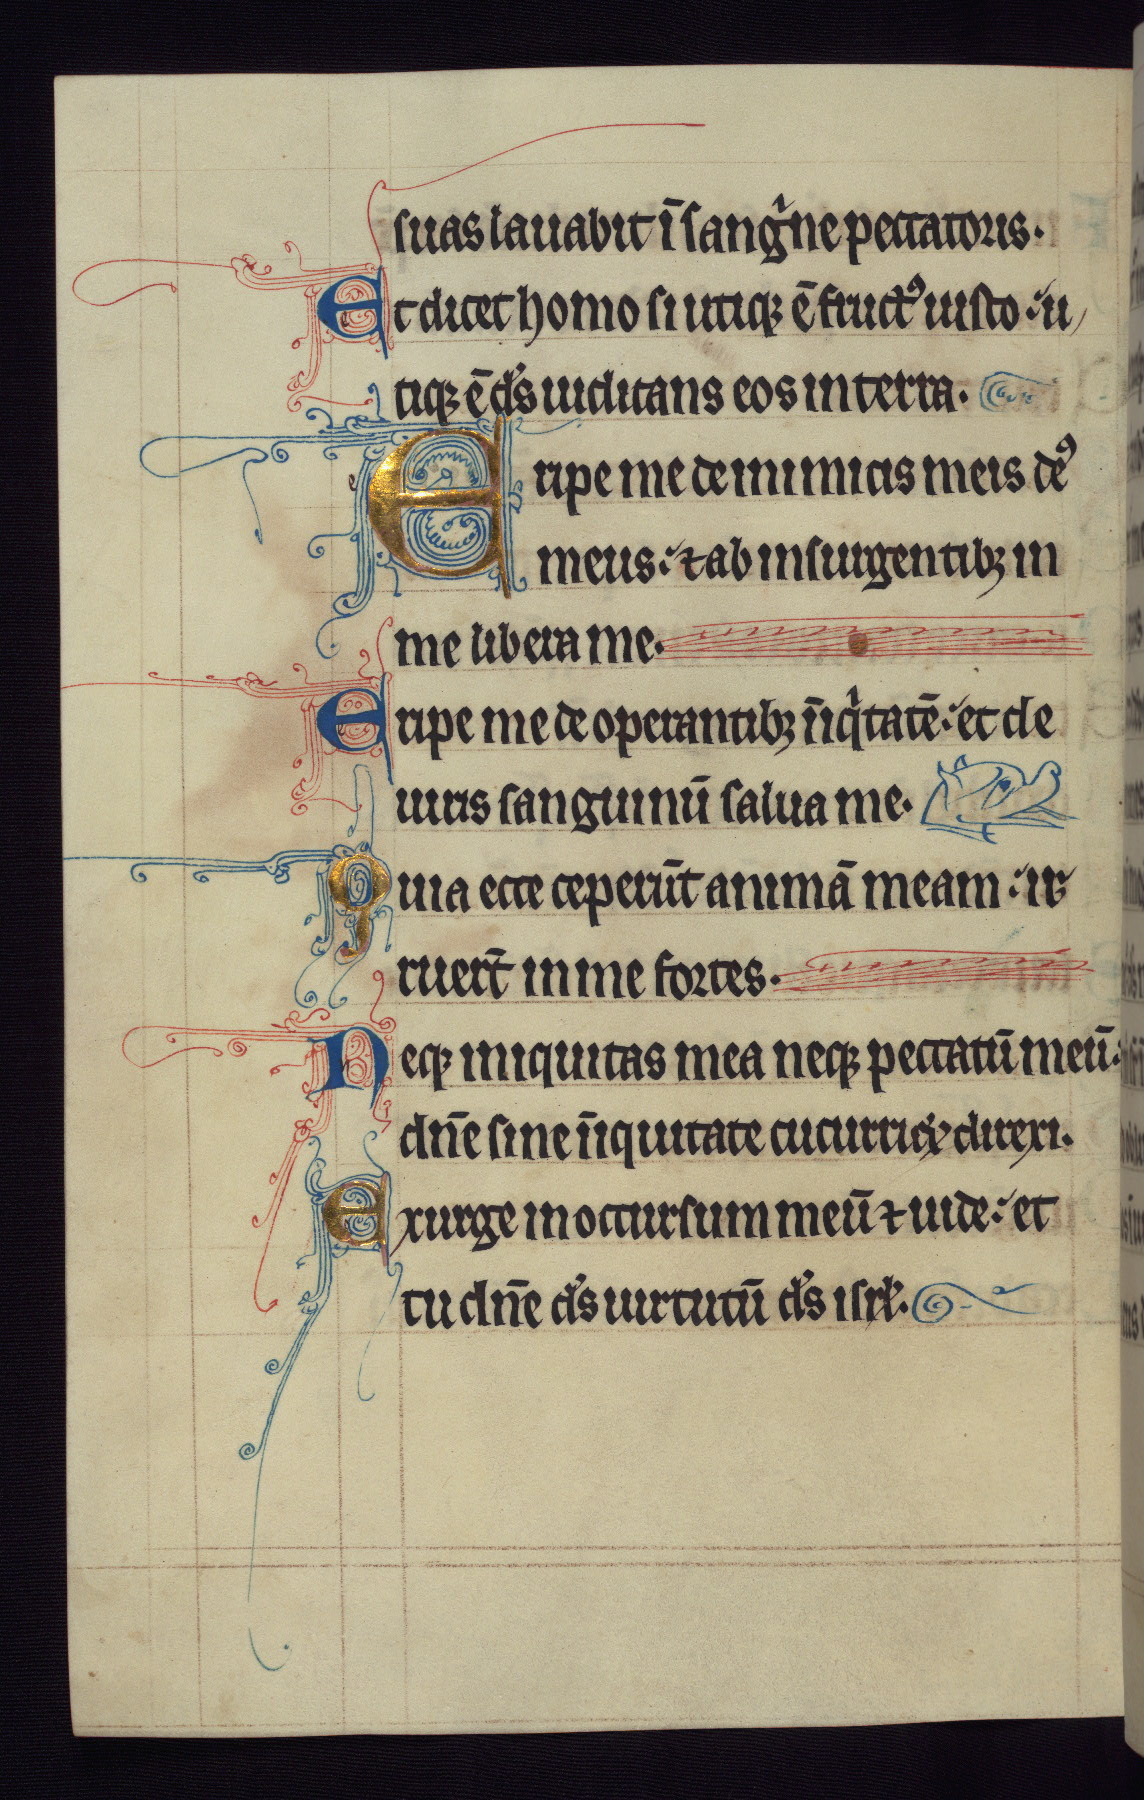 suas lauabit ī sangͥne peccatoris.
Et dicet homo si utiqꝫ ē fructꝰ iusto: u
tiqꝫ ē ds̄ iudicans eos in terra.
Eripe me de inimicis meis deꝰ
meus: ⁊ ab insurgentibꝫ in
me libera me.
Eripe me de operantibꝫ īiqͥtatē: et de
uiris sanguinū salua me.
Quia ecce ceperūt animā meam: ir
ruerūt in me fortes.
Neqꝫ iniquitas mea neqꝫ peccatū meū:
dn̄e sine īiquitate cucurri ⁊ direxi.
Exurge in occursum meū ⁊ uide: et
tu dn̄e ds̄ uirtutū ds̄ isrl̄.